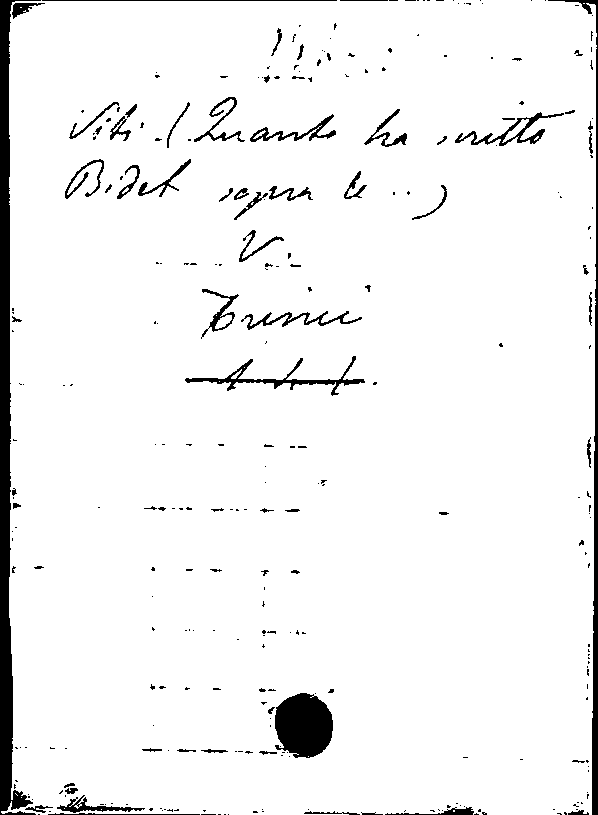 Viti. (Quanto ha scritto
Bidet sopra le ..)
V.
Trinci